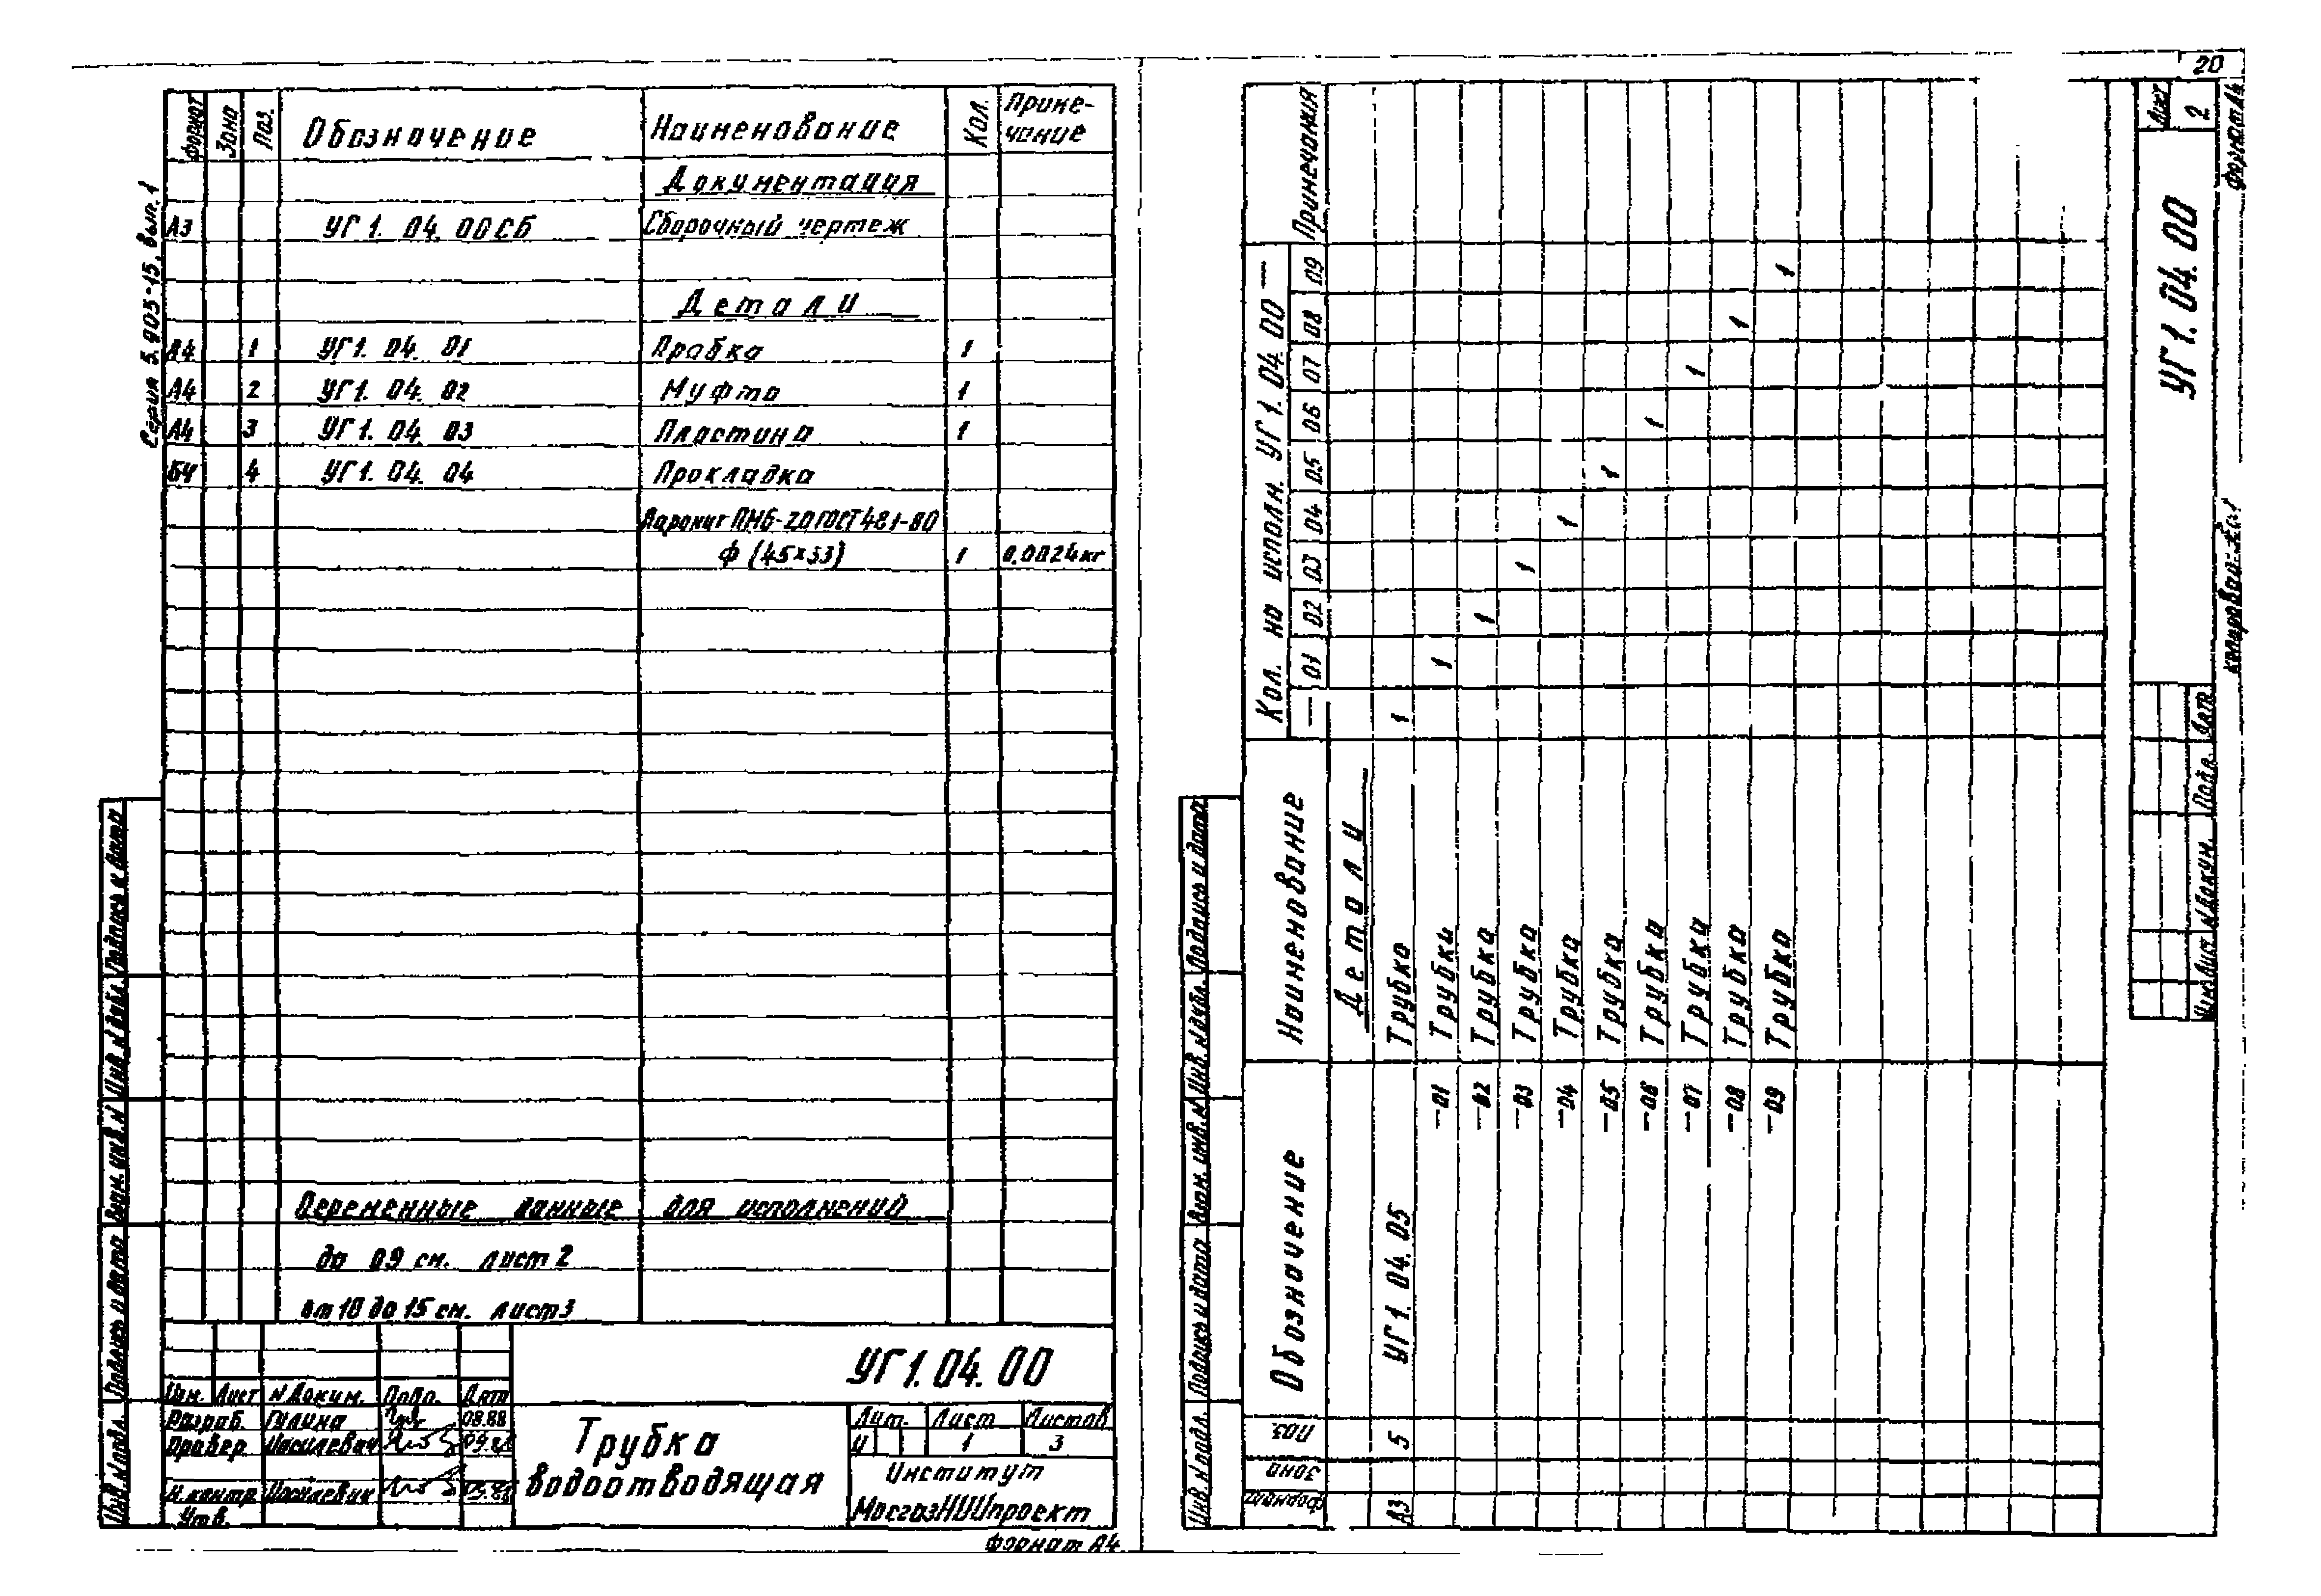 20
Серия 5.905-15, вып. 1
Формат Зона Поз. Обозначение Наименование Кол. Приме-
чание
Документация
А3 УГ 1. 04. 00 СБ Сборочный чертеж
Детали
А4 1 УГ 1. 04. 01 Пробка 1
А4 2 УГ 1. 04. 02 Муфта 1
А4 3 УГ 1. 04. 03 Пластина 1
БЧ 4 УГ 1. 04. 04 Прокладка
Паронит ПМБ-2.0 ГОСТ 481-80
ф (45×33) 1 0.0024кг
Переменные данные для исполнений
до 09 см. лист 2
от 10 до 15 см. лист 3
Подпись и дата
Инв. N дубл.
Взам. инв. N
Подпись и дата
Инв. N подл.
УГ 1. 04. 00
Изм. Лист N Доким. Подп. Дата
Разраб. Гилина 08.88
Провер.
Н. контр.
Утв.
Трубка
водоотводящая
Лит. Лист Листов
И 1 3
Институт
МосгазНИИпроект
Формат А4
Формат Зона Поз. Обозначение Наименование Кол. на исполн. УГ 1. 04. 00 — Примечания
— 01 02 03 04 05 06 07 08 09
Детали
А3 5 УГ 1. 04. 05 Трубка 1
—01 Трубка 1
—02 Трубка 1
—03 Трубка 1
—04 Трубка 1
—05 Трубка 1
—06 Трубка 1
—07 Трубка 1
—08 Трубка 1
—09 Трубка 1
Подпись и дата
Инв. N дубл.
Взам. инв. N
Подпись и дата
Инв. N подл.
Изм. Лист N Докум. Подп. Дата
УГ 1. 04. 00
Лист
2
Формат А4